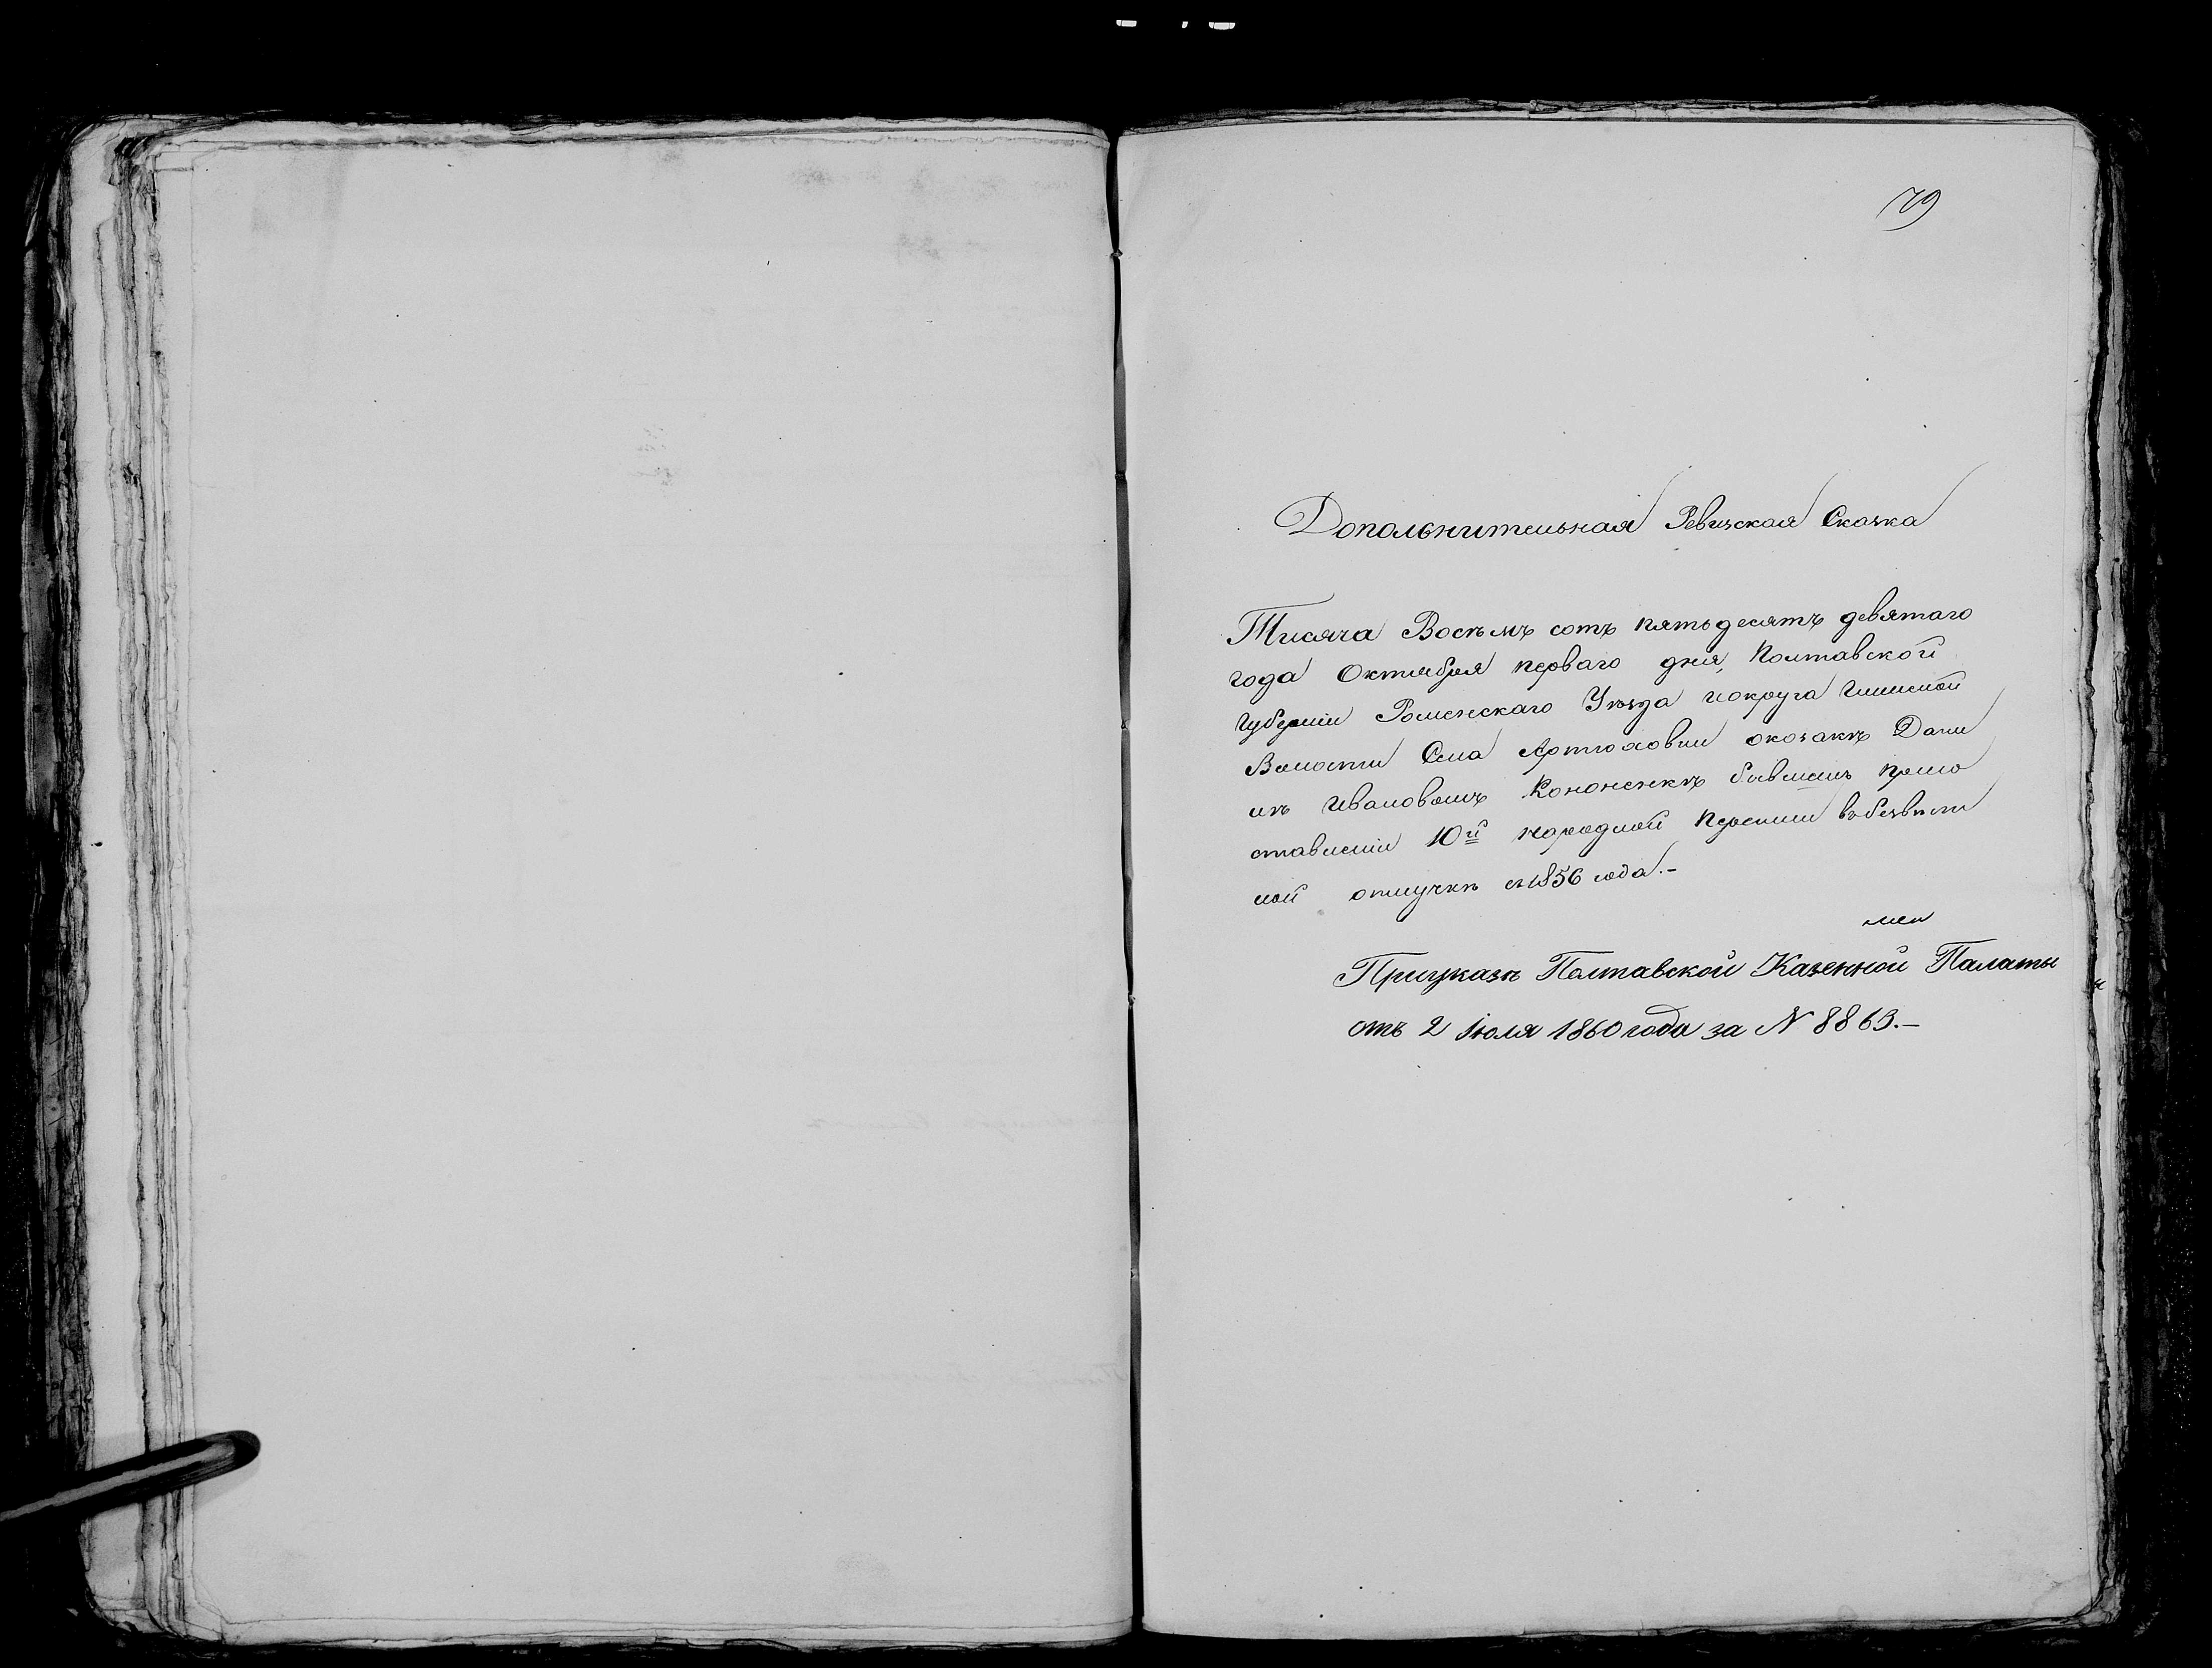 79
Допольнительная Ревизская Сказка
Тисяча Восѣмъ сотъ пятьдесятъ девятаго
года Октября перваго дня, Полтавской
Губерніи Роменскаго Уѣзда иокруга Глинской
Волости Села Артюховки окозакѣ Дани
лѣ Ивановомъ Кононенкѣ бывшемъ присо
ставленіи 10й народной Переписи въбезвѣст
ной отлучкѣ съ1856 года.-
При указѣ Полтавской Казенной Палаты
отъ 2 Іюля 1860 года за N 8863.-